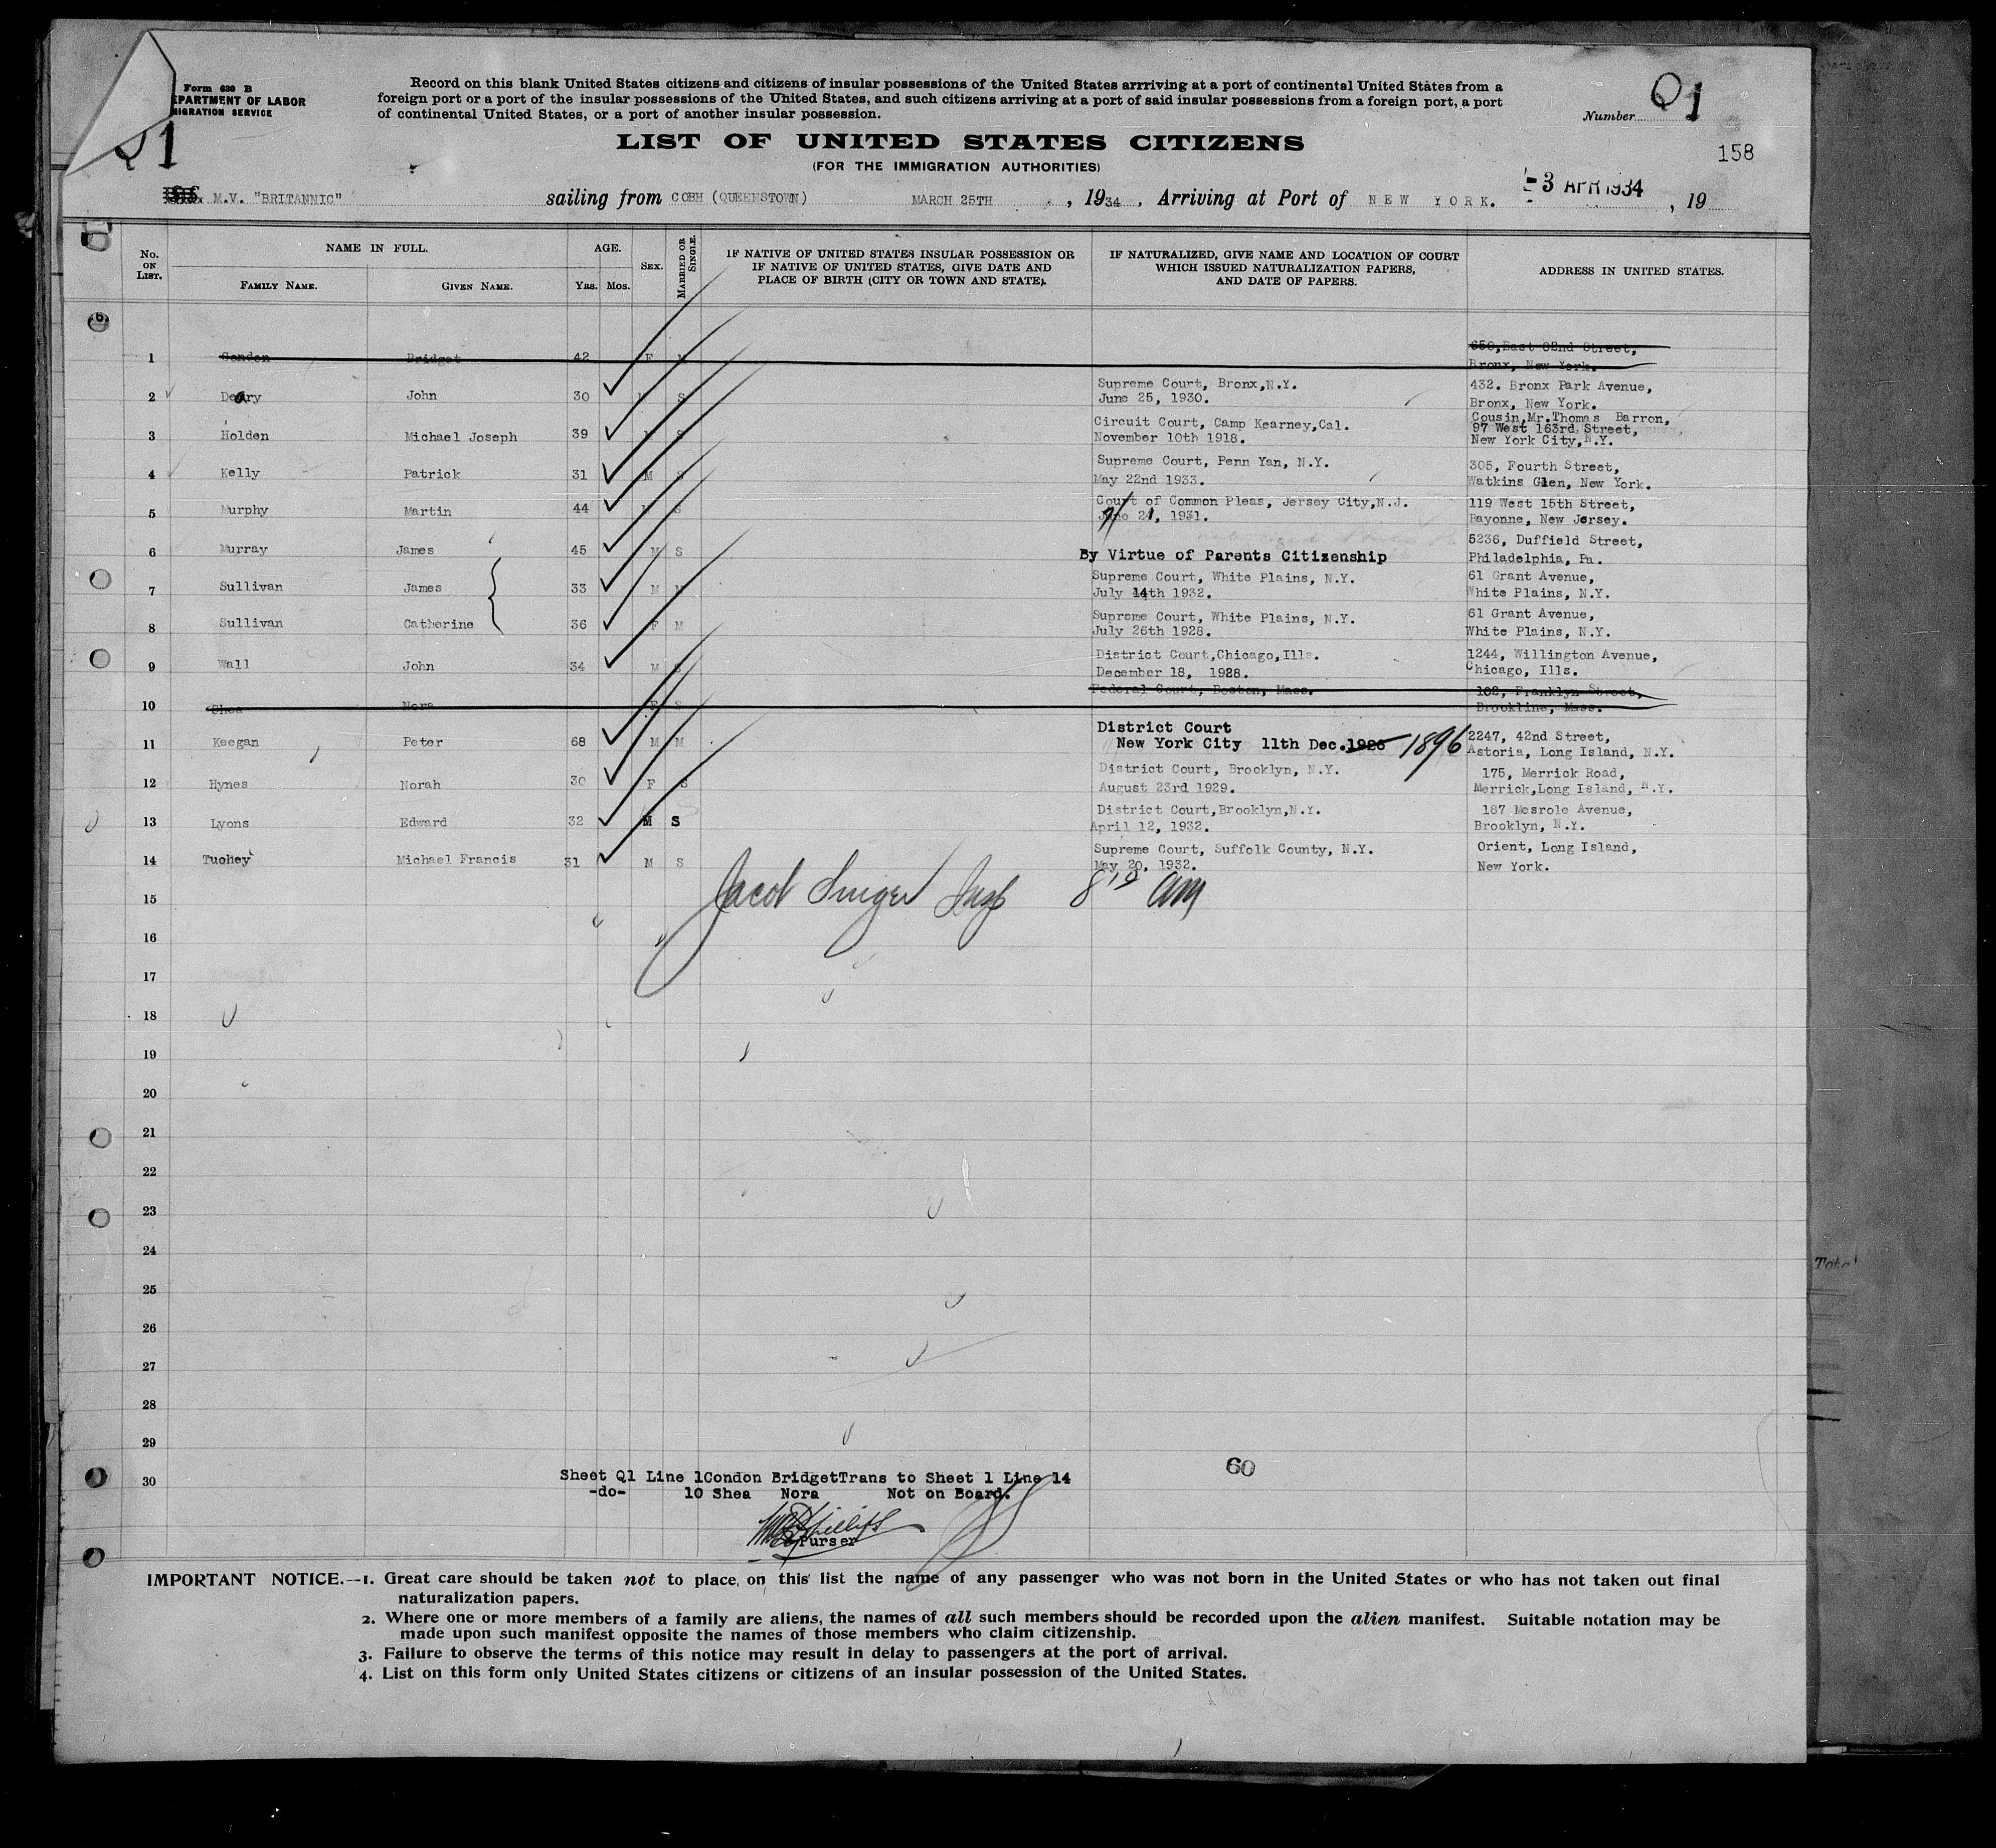 Form 630 B
EPARTMENT OF LABOR
MIGRATION SERVICE
Q1
Record on this blank United States citizens and citizens of insular possessions of the United States arrriving at a port of continental United States from a
foreign port or a port of the insular possessions of the United States, and such citizens arriving at a port of said insular possessions from a foreign port, a port
of continental United States, or a port of another insular possession.
Number Q1
LIST OF UNITED STATES CITIZENS
(FOR THE IMMIGRATION AUTHORITIES)
158
M.V. "BRITANNIC" sailing from COBH (QUEENSTOWN) MARCH 25TH , 1934 , Arriving at Port of NEW YORK. -3 APR 1934 , 19
No. ON LIST. NAME IN FULL. FAMILY NAME. GIVEN NAME. AGE. YRS. MOS. SEX. MARRIED OR SINGLE.
IF NATIVE OF UNITED STATES INSULAR POSSESSION OR
IF NATIVE OF UNITED STATES, GIVE DATE AND
PLACE OF BIRTH (CITY OR TOWN AND STATE).
IF NATURALIZED, GIVE NAME AND LOCATION OF COURT
WHICH ISSUED NATURALIZATION PAPERS,
AND DATE OF PAPERS.
ADDRESS IN UNITED STATES.
1 Condon Bridget 42 F M East 82nd Street,
Bronx, New York.
2 Deary John 30 M S Supreme Court, Bronx,N.Y. 432. Bronx Park Avenue,
June 25, 1930. Bronx, New York.
3 Holden Michael Joseph 39 M S Circuit Court, Camp Kearney,Cal. Cousin,Mr.Thomas Barron,
November 10th 1918. 97 West 163rd Street,
New York City,N.Y.
4 Kelly Patrick 31 M S Supreme Court, Penn Yan, N.Y. 305, Fourth Street,
May 22nd 1933. Watkins Glen, New York.
5 Murphy Martin 44 M S Court of Common Pleas, Jersey City,N.J. 119 West 15th Street,
June 21, 1931. Bayonne, New Jersey.
6 Murray James 45 M S By Virtue of Parents Citizenship 5236, Duffield Street,
Philadelphia, Pa.
7 Sullivan James 33 M M Supreme Court, White Plains, N.Y. 61 Grant Avenue,
July 14th 1932. White Plains, N.Y.
8 Sullivan Catherine 36 F M Supreme Court, White Plains, N.Y. 61 Grant Avenue,
July 26th 1928. White Plains, N.Y.
9 Wall John 34 M S District Court,Chicago,Ills. 1244, Willington Avenue,
December 18, 1928. Chicago, Ills.
10 Shea Nora F S Federal Court, Boston, Mass. 102, Franklyn Street,
Brookline, Mass.
11 Keegan Peter 68 M M District Court 2247, 42nd Street,
New York City 11th Dec.1926 1896 Astoria, Long Island, N.Y.
12 Hynes Norah 30 F S District Court, Brooklyn, N.Y. 175, Merrick Road,
August 23rd 1929. Merrick,Long Island, N.Y.
13 Lyons Edward 32 M S District Court,Brooklyn,N.Y. 187 Mesrole Avenue,
April 12, 1932. Brooklyn, N.Y.
14 Tuohey Michael Francis 31 M S Supreme Court, Suffolk County, N.Y. Orient, Long Island,
May 20, 1932. New York.
15 Jacob Singer Insp 8 10 am
16
17
18
19
20
21
22
23
24
25
26
27
28
29
30
Sheet Q1 Line 1Condon BridgetTrans to Sheet 1 Line 14
-do- 10 Shea Nora Not on Board.
Phillips
Purser
60
IMPORTANT NOTICE.—1. Great care should be taken not to place on this list the name of any passenger who was not born in the United States or who has not taken out final
naturalization papers.
2. Where one or more members of a family are aliens, the names of all such members should be recorded upon the alien manifest. Suitable notation may be
made upon such manifest opposite the names of those members who claim citizenship.
3. Failure to observe the terms of this notice may result in delay to passengers at the port of arrival.
4. List on this form only United States citizens or citizens of an insular possession of the United States.